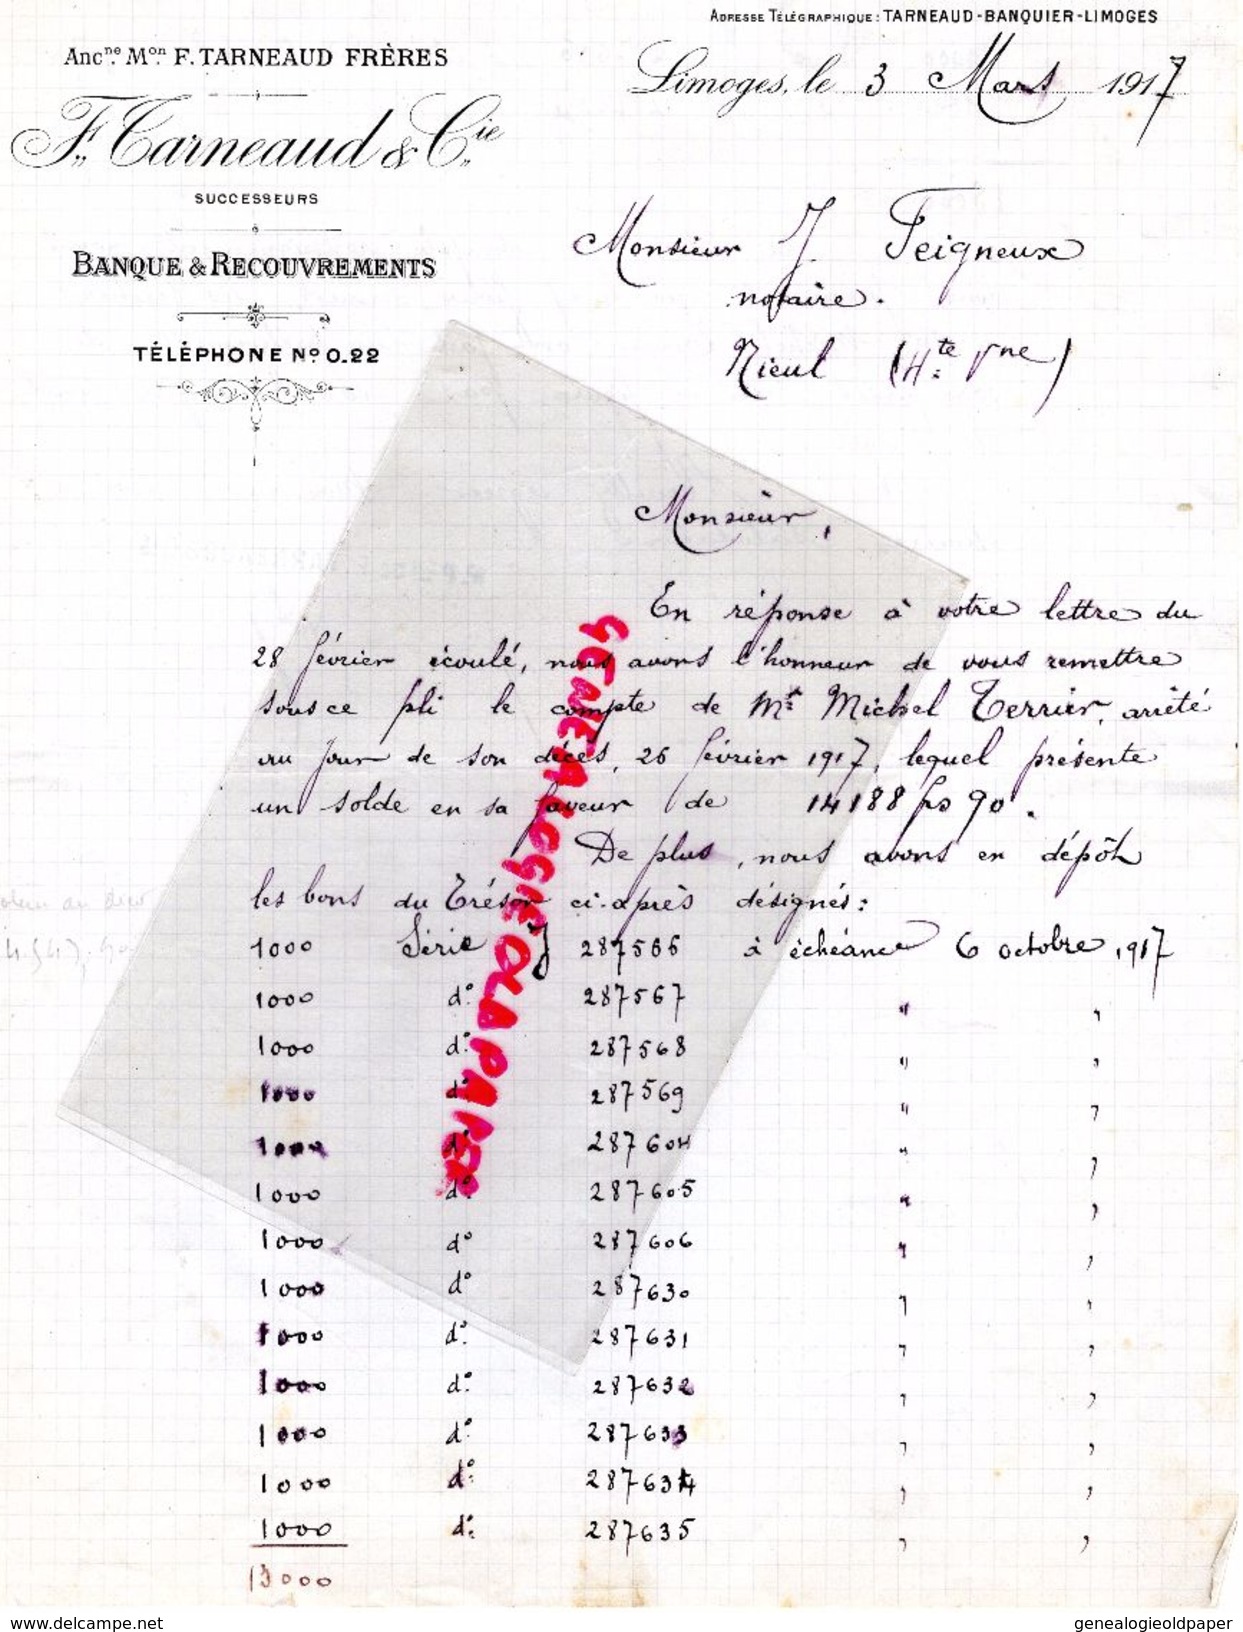 Adresse Télégraphique : TARNEAUD-BANQUIER-LIMOGES
Anc.ne M.on F. TARNEAUD FRÈRES
F. Tarneaud & C.ie
SUCCESSEURS
BANQUE & RECOUVREMENTS
TÉLÉPHONE Nº 0.22
Limoges, le 3 Mars 1917
Monsieur J. Feigneux
notaire.
Nieul (Hte Vne)
Monsieur,
En réponse à votre lettre du
28 février écoulé, nous avons l'honneur de vous remettre
sous ce pli le compte de Mr Michel Terrier, arrêté
au jour de son décès, 26 février 1917, lequel présente
un solde en sa faveur de 14188 fs 90.
De plus, nous avons en dépôt
les bons du Trésor ci-après désignés :
1000 Série J 287566 à échéance 6 octobre 1917
1000 do 287567 " "
1000 do 287568 " "
1000 do 287569 " "
1000 do 287604 " "
1000 do 287605 " "
1000 do 287606 " "
1000 do 287630 " "
1000 do 287631 " "
1000 do 287632 " "
1000 do 287633 " "
1000 do 287634 " "
1000 do 287635 " "
13000
GENEALOGIEOLDPAPER
www.delcampe.net
genealogieoldpaper